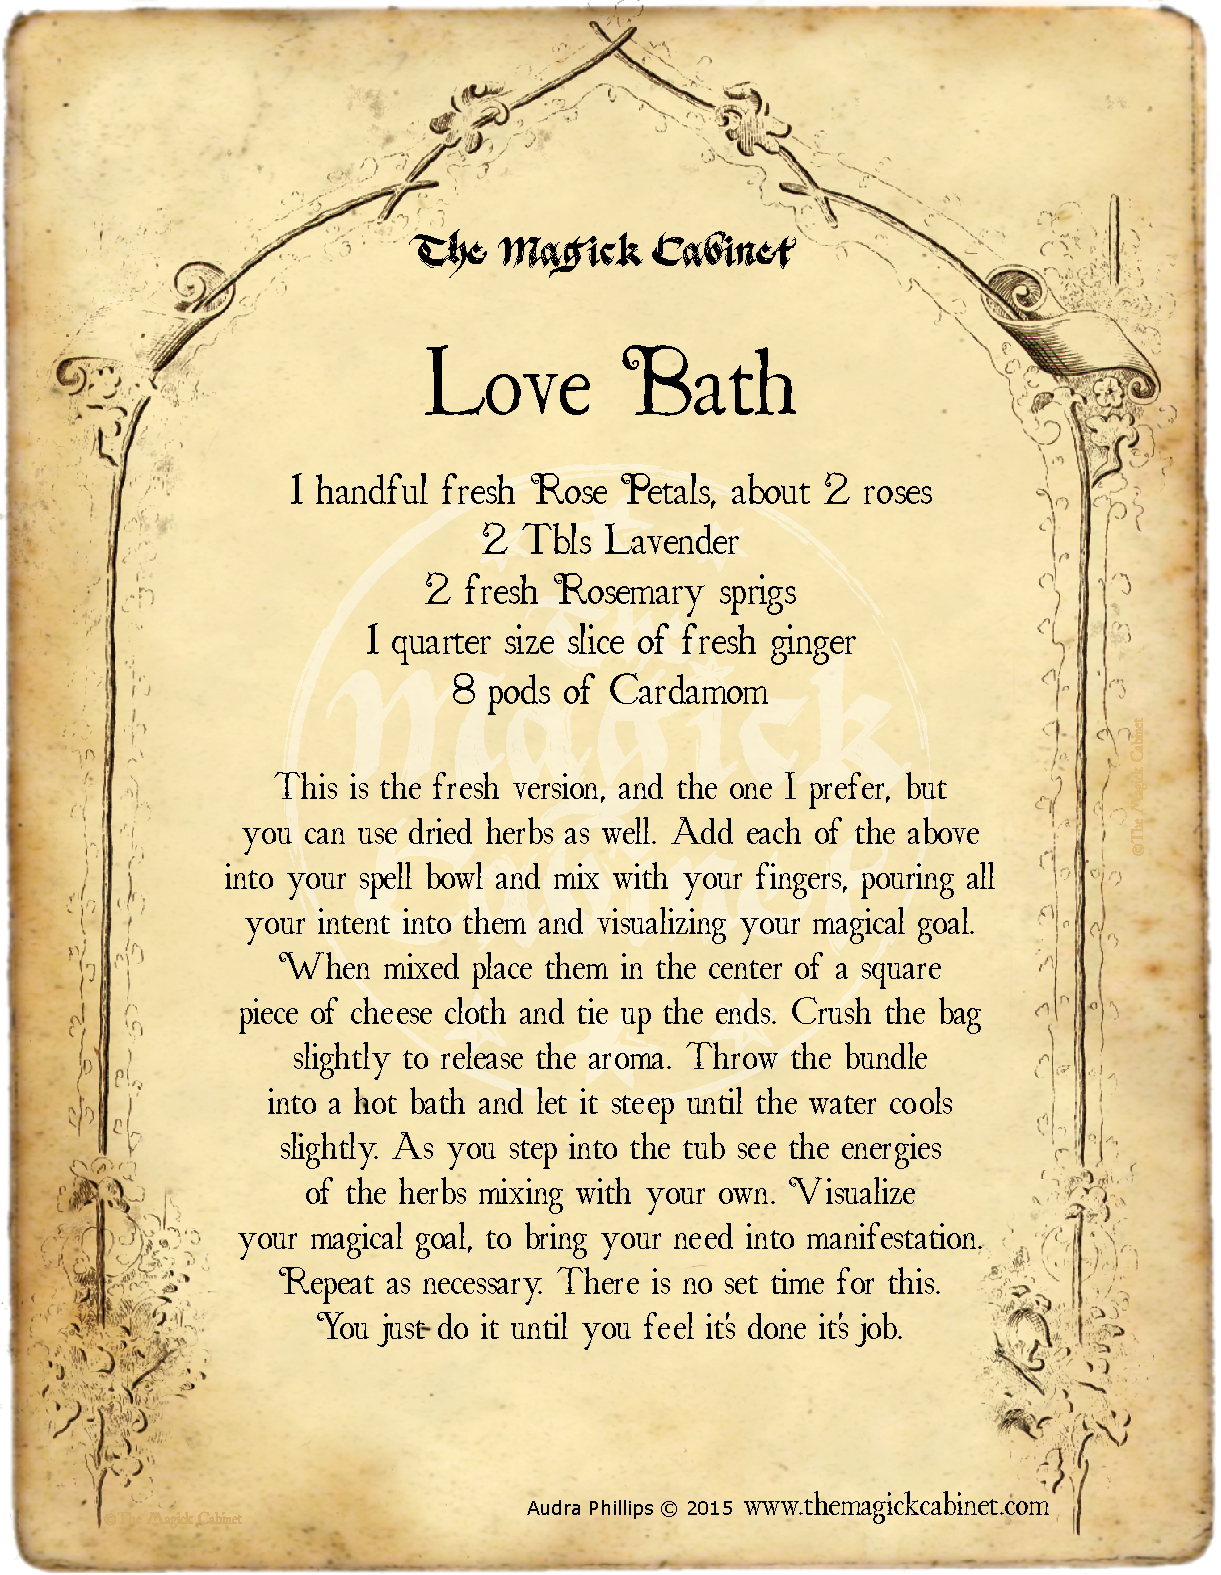 The Magick Cabinet
Love Bath
1 handful fresh Rose Petals, about 2 roses
2 Tbls Lavender
2 fresh Rosemary sprigs
1 quarter size slice of fresh ginger
8 pods of Cardamom
This is the fresh version, and the one I prefer, but
you can use dried herbs as well. Add each of the above
into your spell bowl and mix with your fingers, pouring all
your intent into them and visualizing your magical goal.
When mixed place them in the center of a square
piece of cheese cloth and tie up the ends. Crush the bag
slightly to release the aroma. Throw the bundle
into a hot bath and let it steep until the water cools
slightly. As you step into the tub see the energies
of the herbs mixing with your own. Visualize
your magical goal, to bring your need into manifestation.
Repeat as necessary. There is no set time for this.
You just do it until you feel it's done it's job.
Audra Phillips © 2015 www.themagickcabinet.com
The Magick Cabinet
©The Magick Cabinet
©The Magick Cabinet